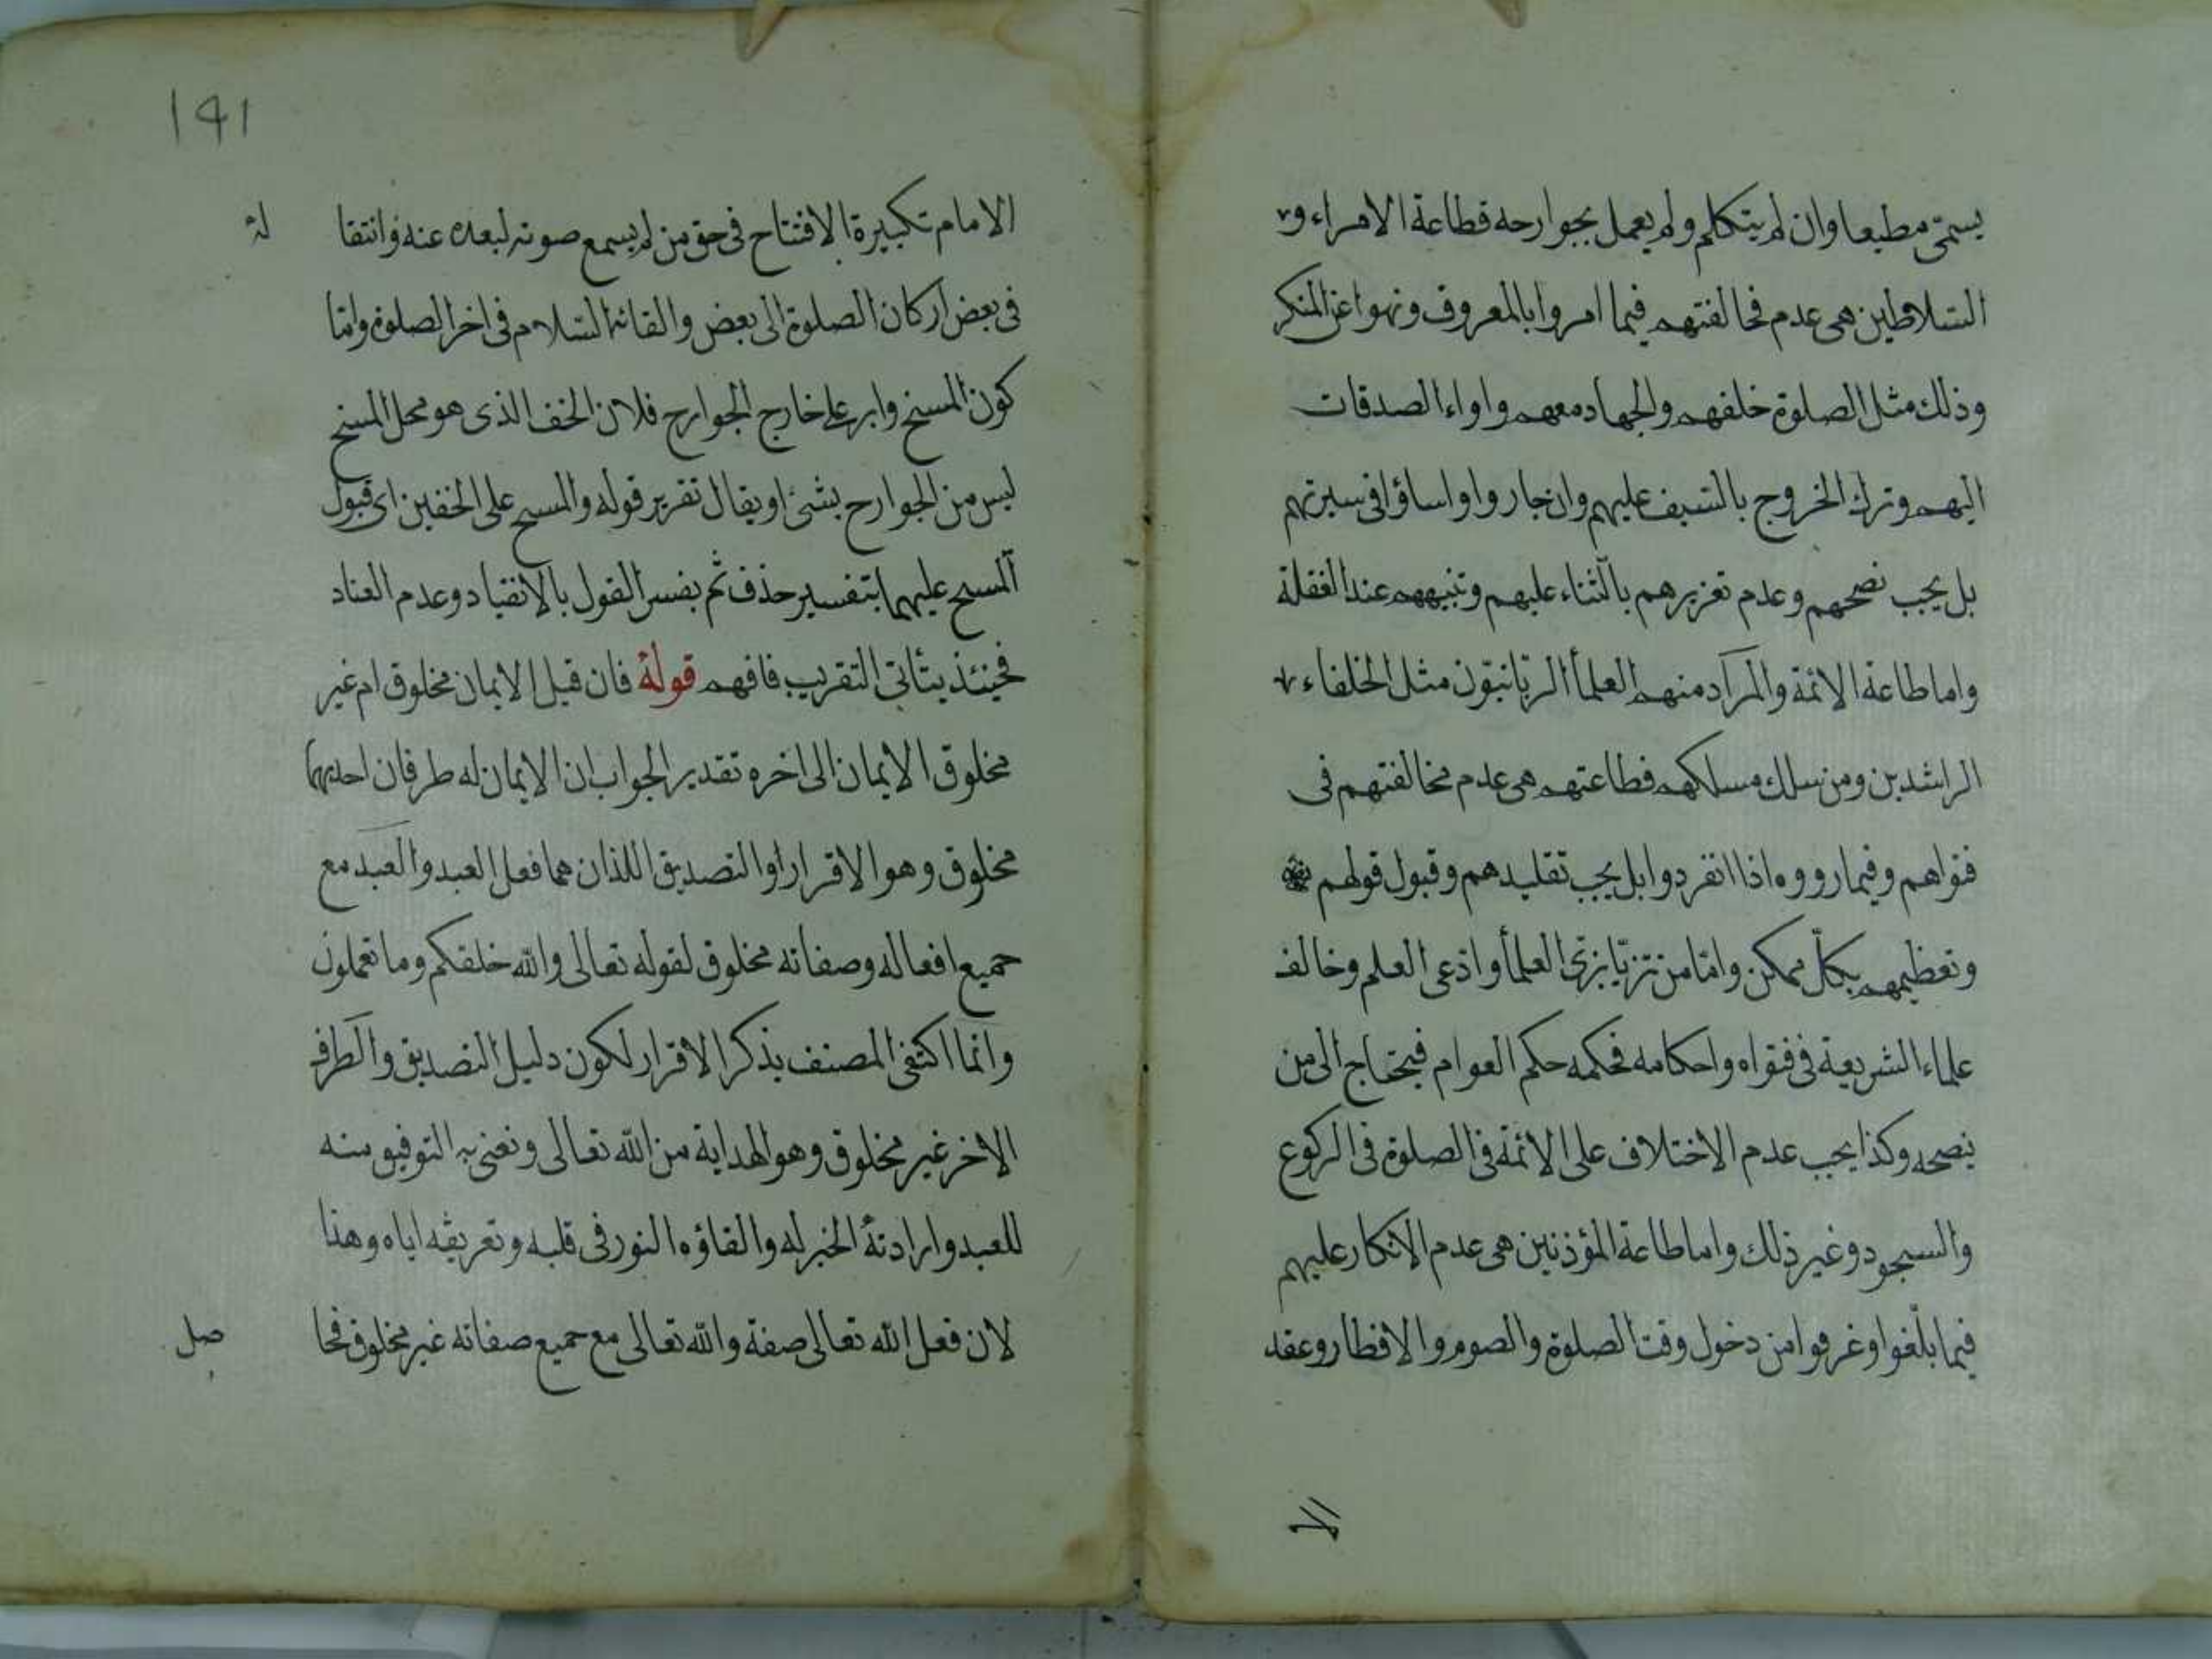 يسمّى مطيعا وان لم يتكلم ولم يعمل بجوارحه فطاعة الامراء و
السّلاطين هى عدم مخالفتهم فيما امروا بالمعروف ونهوا عن المنكر
وذلك مثل الصلوة خلفهم والجهاد معهم واداء الصدقات
اليهم وترك الخروج بالسّيف عليهم وان جاروا واساؤا فى سيرتهم
بل يجب نصحهم وعدم تغريرهم بالثناء عليهم وتنبيههم عند الغفلة
واما طاعة الائمة والمراد منهم العلمأ الربّانيّون مثل الخلفاء
الراشدين ومن سلك مسلكهم فطاعتهم هى عدم مخالفتهم فى
فتواهم وفيما رووه اذا انفردوا بل يجب تقليدهم وقبول قولهم
وتعظيمهم بكلّ ممكن وامّا من تزيّا بزىّ العلمأ وادّعى العلم وخالف
علماء الشريعة فى فتواه واحكامه فحكمه حكم العوام فيحتاج الى من
ينصحه وكذا يجب عدم الاختلاف على الائمة فى الصلوة فى الركوع
والسجود وغير ذلك واما طاعة المؤذنين هى عدم الانكار عليهم
فيما بلّغوا وعرفوا من دخول وقت الصلوة والصوم والافطار وعقد
الا
191
الامام تكبيرة الافتتاح فى حق من لم يسمع صوته لبعده عنه وانتقا له
فى بعض اركان الصلوة الى بعض والقائه السّلام فى اخر الصلوة وامّا
كون المسح وابر على خارج الجوارح فلان الخف الذى هو محل المسح
ليس من الجوارح بشئ او يقال تقرير قوله والمسح على الخفين اى قبول
المسح عليهما بتفسير حذف ثم يفسر القول بالانقياد وعدم العناد
فحينئذ يتأتى التقريب فافهم قولهُ فان قيل الايمان مخلوق ام غير
مخلوق الايمان الى اخره تقدير الجواب ان الايمان له طرفان احديهما
مخلوق وهو الاقرار او التصديق اللذان هما فعل العبد والعبد مع
جميع افعاله وصفاته مخلوق لقوله تعالى والله خلقكم وما تعملون
وانما اكتفى المصنف بذكر الاقرار لكون دليل التصديق والطرف
الاخر غير مخلوق وهو الهداية من الله تعالى ونعنى به التوفيق منه
للعبد وارادتهُ الخير له والقاؤه النور فى قلبه وتعريفه اياه وهذا
لان فعل الله تعالى صفة والله تعالى مع جميع صفاته غير مخلوق فحا صل